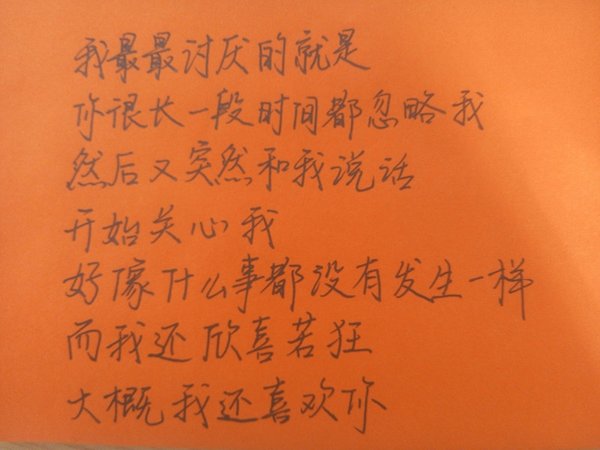 我最最讨厌的就是
你很长一段时间都忽略我
然后又突然和我说话
开始关心我
好像什么事都没有发生一样
而我还欣喜若狂
大概我还喜欢你